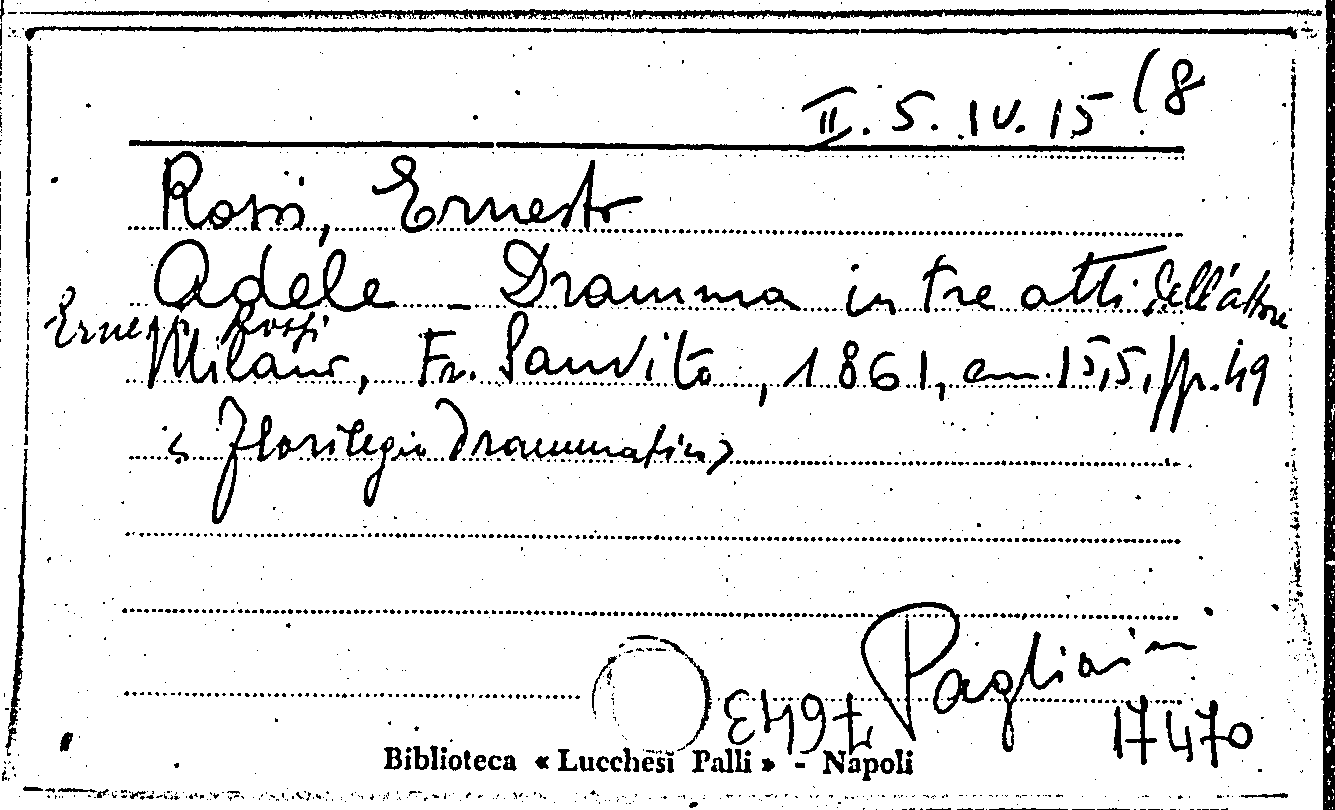 II. S. IV. 15 (8
Rossi, Ernesto
Adele - Dramma in tre atti dell'attore
Ernesto Rossi
Milano, Fr. Sanvito, 1861, cm. 15,5, pp. 49
< Florilegio drammatico >
Pagliaini
17470
Biblioteca « Lucchesi Palli » - Napoli